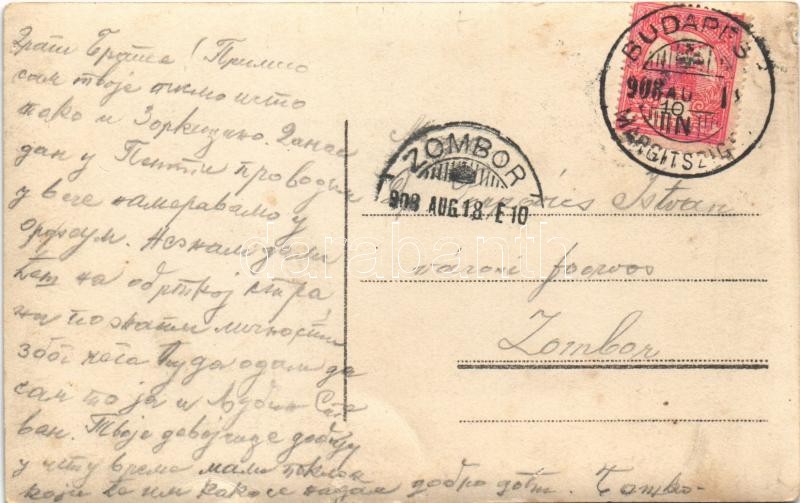 Драги Браца! Примио
сам твоје писмо исто
тако и Зоркицино. Данас
дан у Пешти проводим
у вече намеравамо у
Орфеум. Не знам дали
ћеш на обрткој стра
на познати личности
због чега ћу да одам да
сам то ја и Љубин Сте
ван. Твоје девојчице добију
у исту време мали поклон
који ће им како се надам добро доћи. Танко.
BUDAPEST
908 AU
10
N
MARGITSZIGET
ZOMBOR
908 AUG.13. E 10
István
városi főorvos
Zombor
darabanth